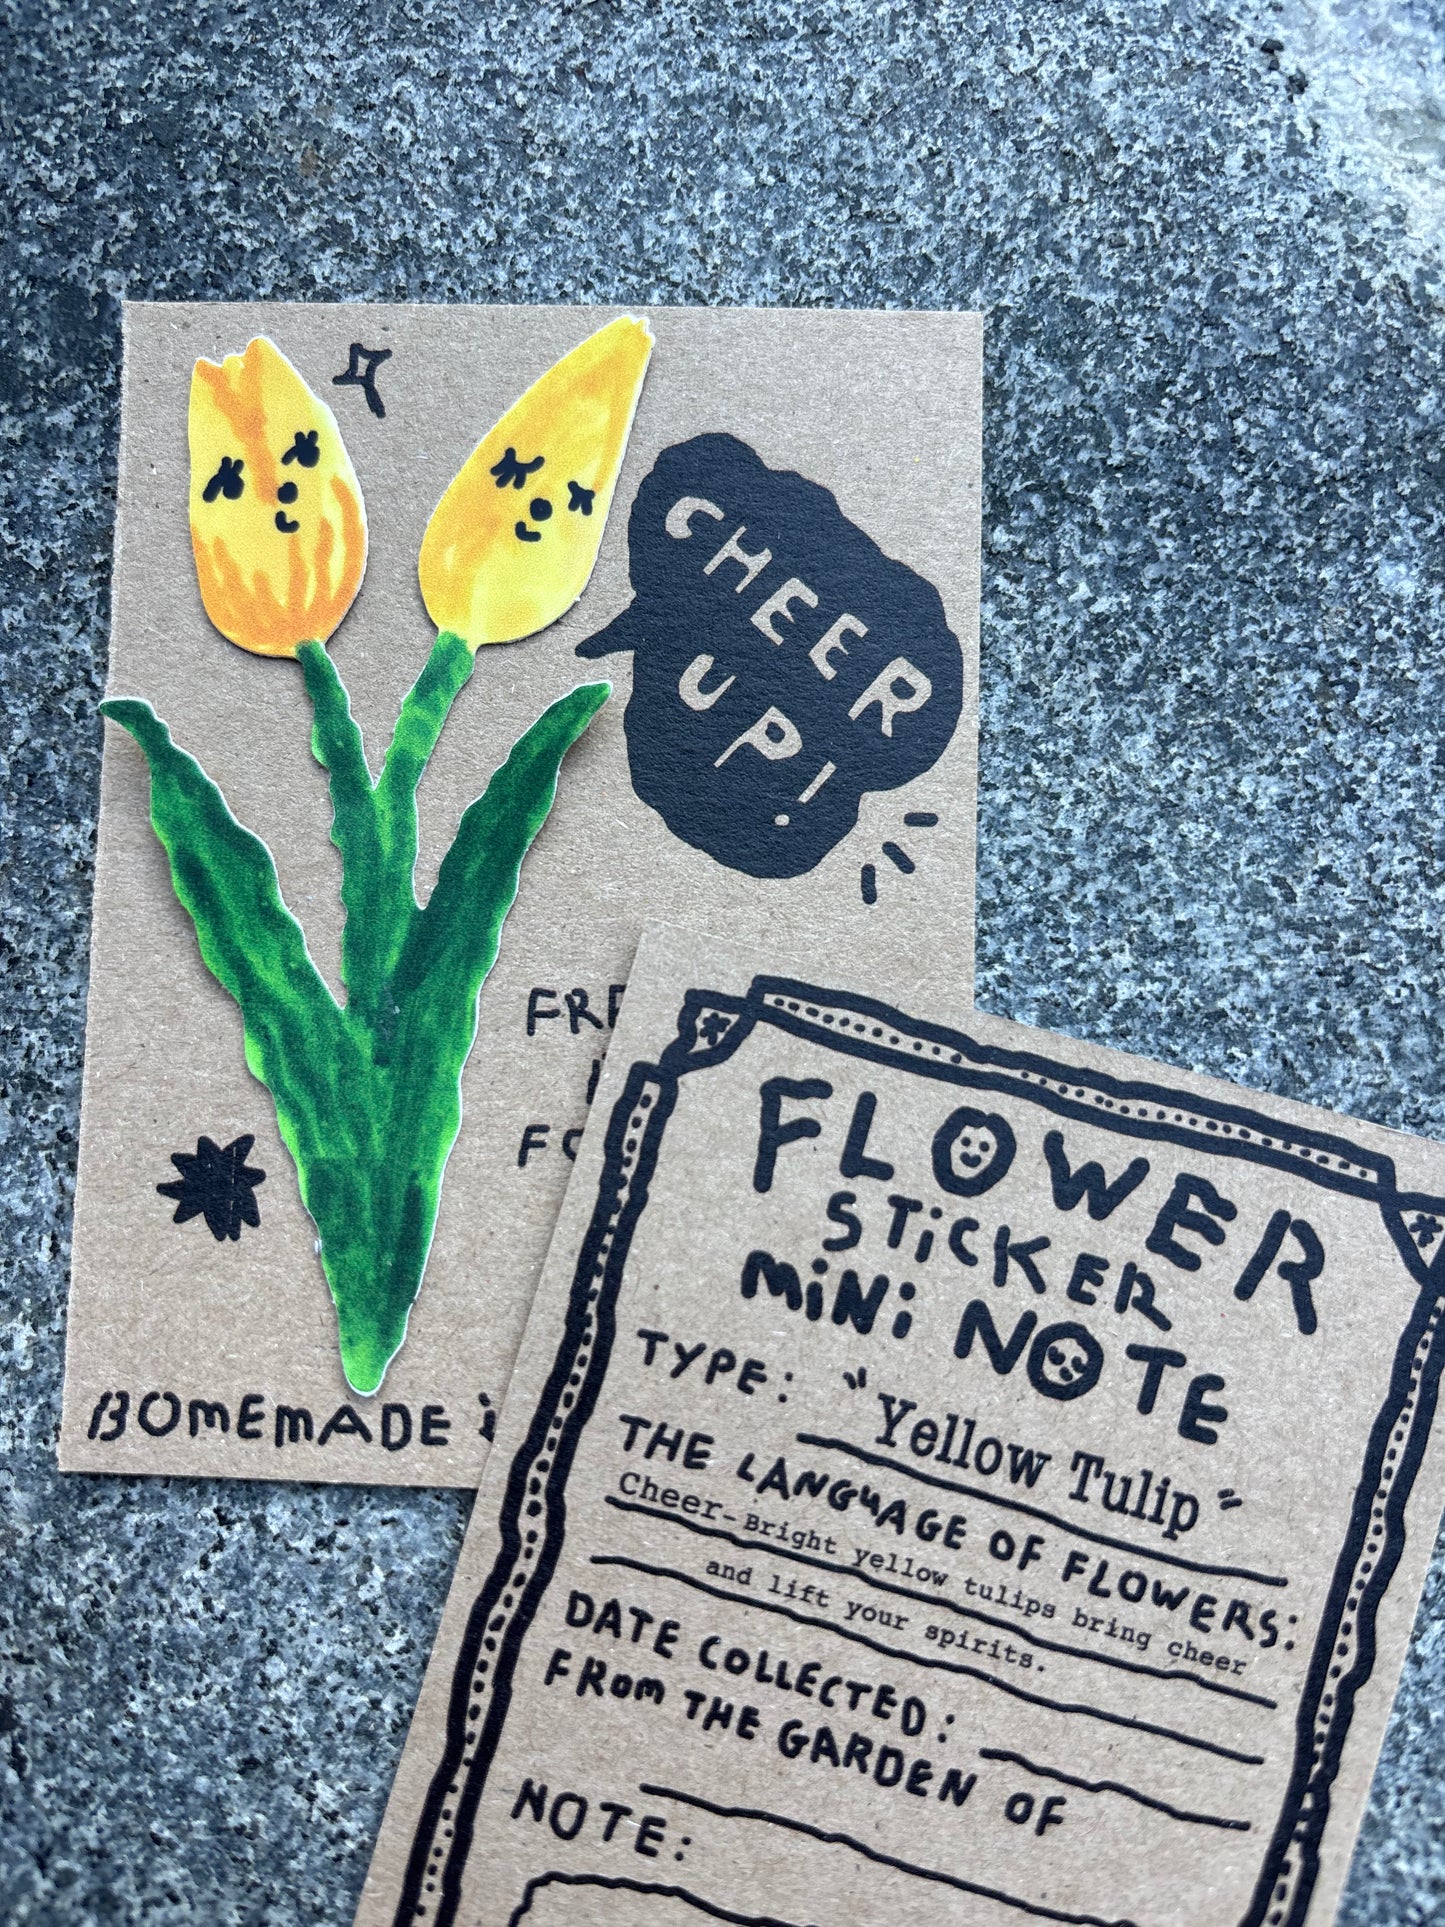 CHEER
UP!
BOMEMADE
FLOWER
STiCKER
MiNi NOTE
TYPE: "Yellow Tulip"
THE LANGUAGE OF FLOWERS:
Cheer-Bright yellow tulips bring cheer
and lift your spirits.
DATE COLLECTED:
FROM THE GARDEN OF
NOTE: